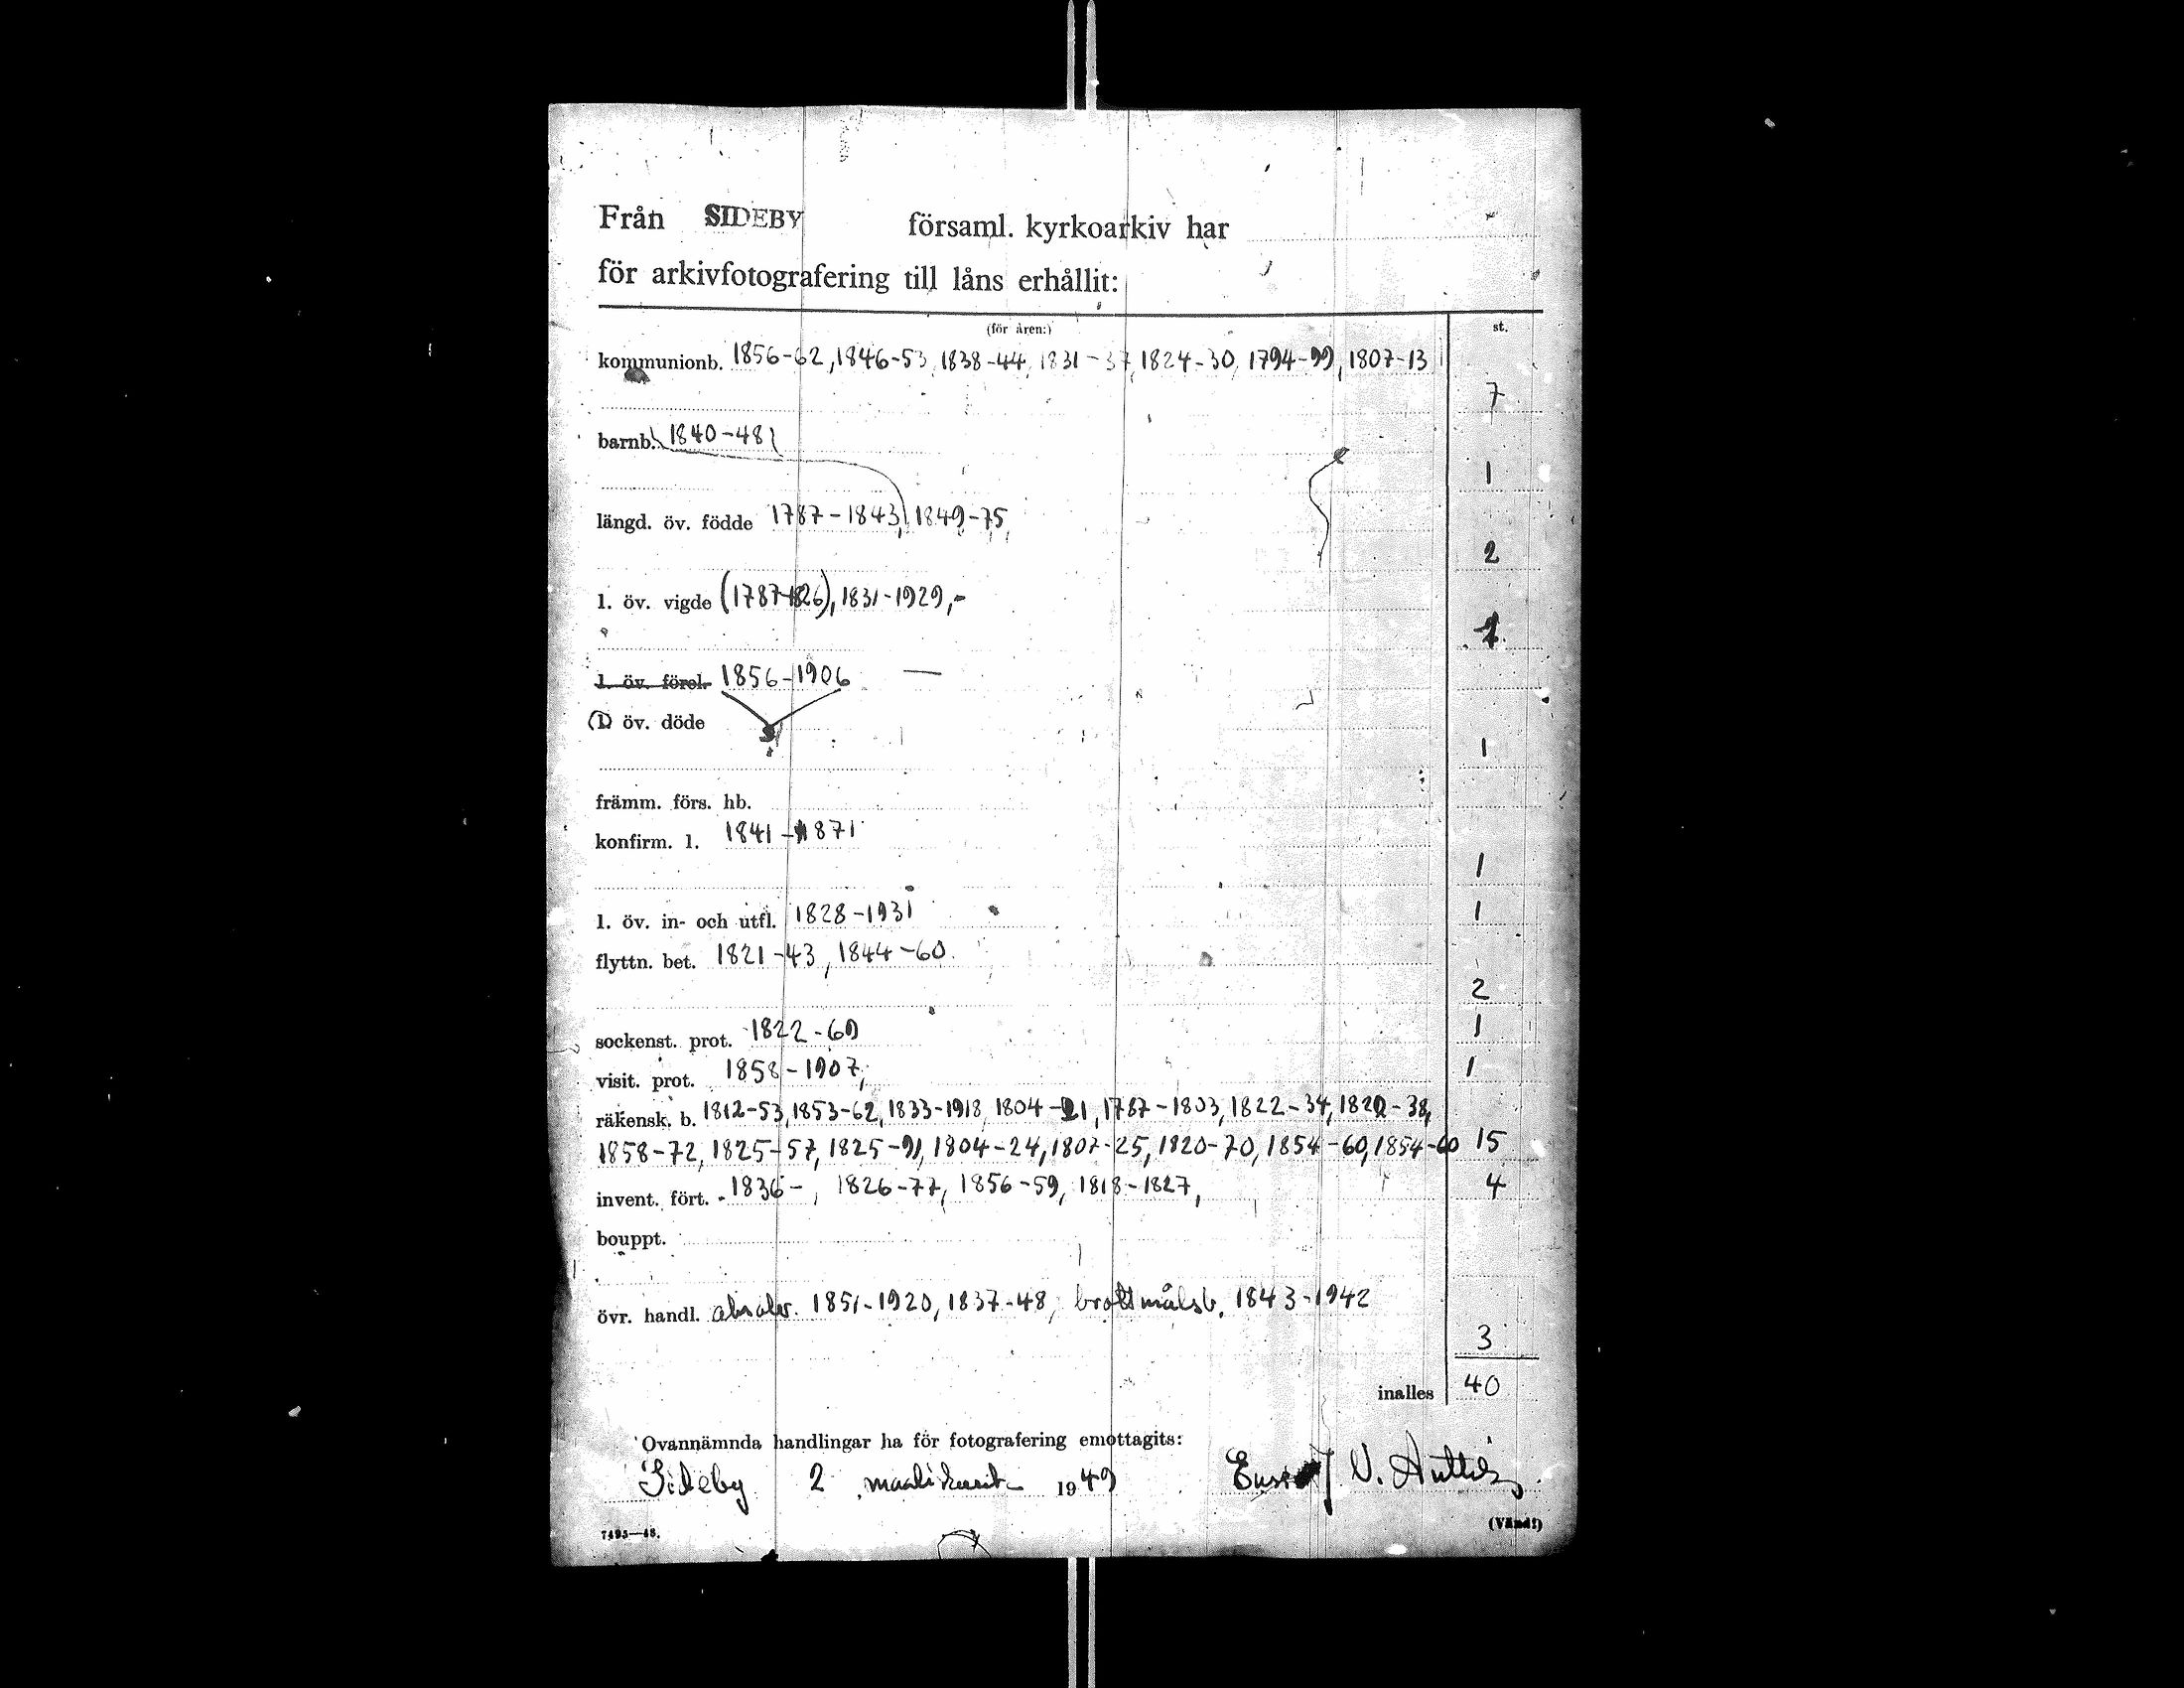 Från SIDEBY församl. kyrkoarkiv har
för arkivfotografering till låns erhållit:
(för åren:) st.
kommunionb. 1856-62, 1846-53, 1838-44, 1831-37, 1824-30, 1794-99, 1807-13
7
barnb. 1840-48
1
längd. öv. födde 1787-1843, 1849-75,
2
l. öv. vigde (1787-1826), 1831-1929,-
1
l. öv. förel. 1856-1906 —
l. öv. döde
1
främm. förs. hb.
konfirm. l. 1841-1871
1
l. öv. in- och utfl. 1828-1931 1
flyttn. bet. 1821-43, 1844-60.
2
sockenst. prot. 1822-69 1
visit. prot. 1858-1907, 1
räkensk. b. 1812-53, 1853-62, 1833-1918, 1804-21, 1787-1803, 1822-34, 1822-38,
1858-72, 1825-57, 1825-91, 1804-24, 1807-25, 1820-70, 1854-60, 1854-60 15
invent. fört. 1836-, 1826-77, 1856-59, 1818-1827, 4
bouppt.
övr. handl. 1851-1920, 1837-48, brottmålsb. 1843-1942
3
inalles 40
Ovannämnda handlingar ha för fotografering emottagits:
Sideby 2 maaliskuuta 1949 V. Anttila
7495—48. (Vänd!)